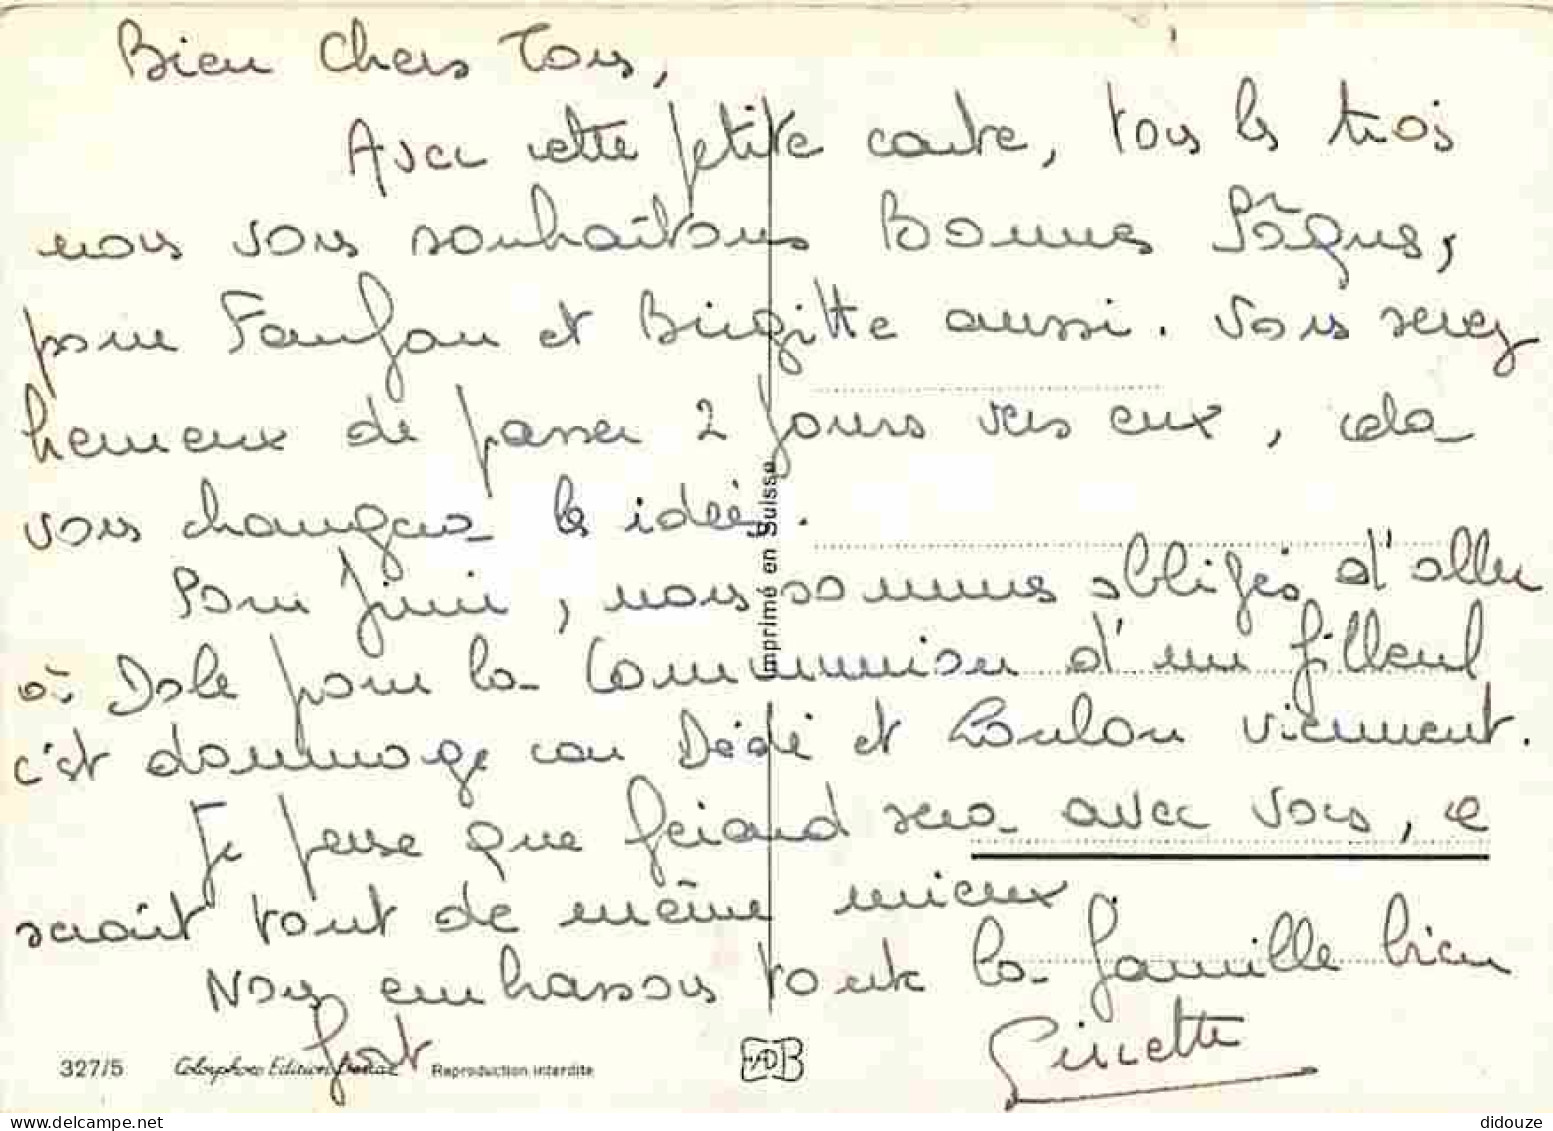 Bien Chers Tous,
Avec cette petite carte, tous les trois
nous vous souhaitons Bonnes Pâques,
pour Fanfan et Brigitte aussi. Vous serez
heureux de passer 2 jours vers eux, cela
vous changera les idées.
Pour Juin, nous sommes obligés d'aller
à Dole pour la Communion d'un filleul
c'est dommage car Dédé et Loulou viennent.
Je pense que Gérard sera avec vous, ce
serait tout de même mieux.
Nous embrassons toute la famille bien
fort
Ginette
Imprimé en Suisse
327/5
Colorphoto Edition
Reproduction interdite
didouze